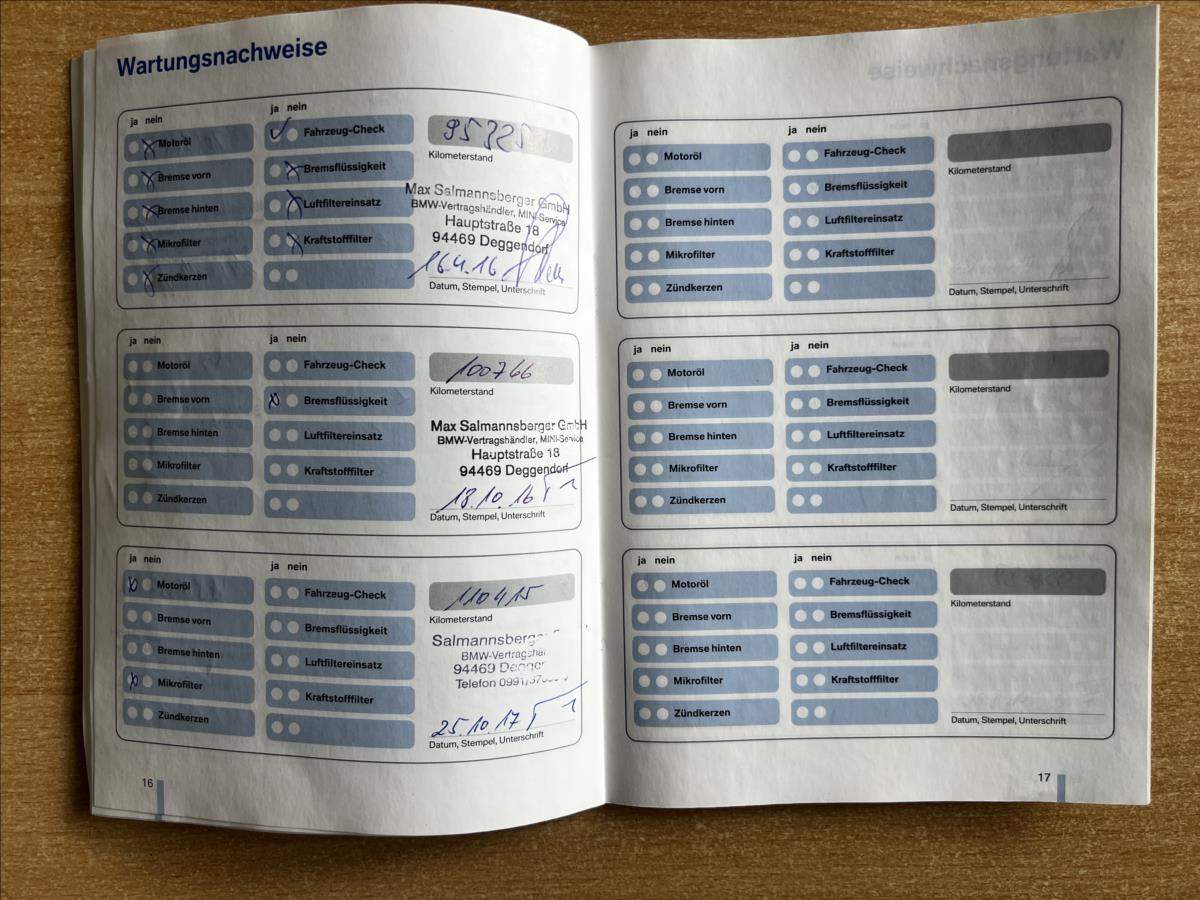 Wartungsnachweise
ja nein
Motoröl
Bremse vorn
Bremse hinten
Mikrofilter
Zündkerzen
ja nein
Fahrzeug-Check
Bremsflüssigkeit
Luftfiltereinsatz
Kraftstofffilter
95325
Kilometerstand
Max Salmannsberger GmbH
BMW-Vertragshändler, MINI-Service
Hauptstraße 18
94469 Deggendorf
16.4.16
Datum, Stempel, Unterschrift
ja nein
Motoröl
Bremse vorn
Bremse hinten
Mikrofilter
Zündkerzen
ja nein
Fahrzeug-Check
Bremsflüssigkeit
Luftfiltereinsatz
Kraftstofffilter
100766
Kilometerstand
Max Salmannsberger GmbH
BMW-Vertragshändler, MINI-Service
Hauptstraße 18
94469 Deggendorf
13.10.16
Datum, Stempel, Unterschrift
ja nein
Motoröl
Bremse vorn
Bremse hinten
Mikrofilter
Zündkerzen
ja nein
Fahrzeug-Check
Bremsflüssigkeit
Luftfiltereinsatz
Kraftstofffilter
110415
Kilometerstand
BMW-Vertragshän
94469
Telefon
25.10.17
Datum, Stempel, Unterschrift
16
ja nein
Motoröl
Bremse vorn
Bremse hinten
Mikrofilter
Zündkerzen
ja nein
Fahrzeug-Check
Bremsflüssigkeit
Luftfiltereinsatz
Kraftstofffilter
Kilometerstand
Datum, Stempel, Unterschrift
ja nein
Motoröl
Bremse vorn
Bremse hinten
Mikrofilter
Zündkerzen
ja nein
Fahrzeug-Check
Bremsflüssigkeit
Luftfiltereinsatz
Kraftstofffilter
Kilometerstand
Datum, Stempel, Unterschrift
ja nein
Motoröl
Bremse vorn
Bremse hinten
Mikrofilter
Zündkerzen
ja nein
Fahrzeug-Check
Bremsflüssigkeit
Luftfiltereinsatz
Kraftstofffilter
Kilometerstand
Datum, Stempel, Unterschrift
17